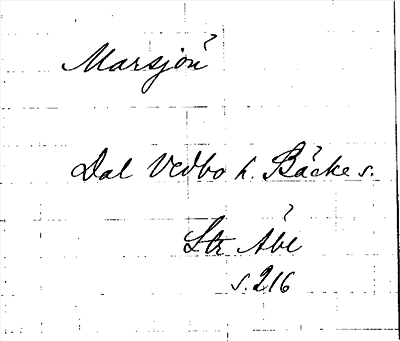 Marsjön
Dal Vedbo h. Bäcke s.
Str Åbl
s. 216